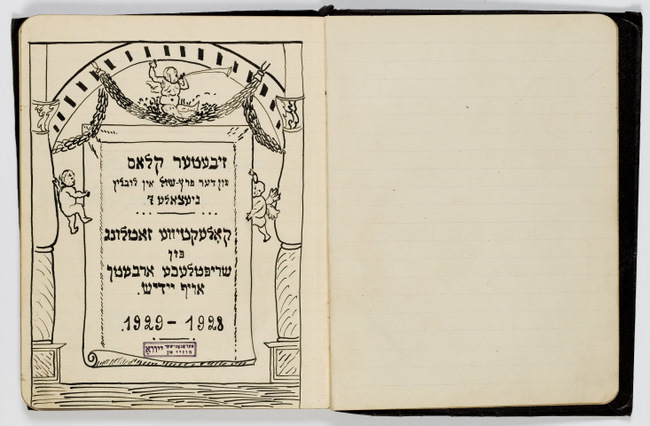 זיבעטער קלאס
פון דער פרץ-שול אין לובלין
ניעצאלע 7
קאָלעקטיווע זאמלונג
פון
שריפטלעכע ארבעטן
אויף יידיש.
1928 – 1929.
ייוואָ